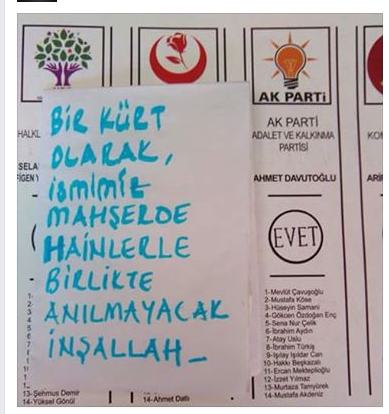 BİR KÜRT
OLARAK,
İSMİMİZ
MAHŞERDE
HAİNLERLE
BİRLİKTE
ANILMAYACAK
İNŞALLAH_
HALKL
SELA
FİGEN Y
13-Şehmus Demir
14-Yüksel Gönül
14-Ahmet Datlı
AK PARTİ
AK PARTİ
ADALET VE KALKINMA
PARTİSİ
AHMET DAVUTOĞLU
EVET
1-Mevlüt Çavuşoğlu
2-Mustafa Köse
3-Hüseyin Samani
4-Gökcen Özdoğan Enç
5-Sena Nur Çelik
6-İbrahim Aydın
7-Atay Uslu
8-İbrahim Türkiş
10-Hakkı Beşkazalı
11-Ercan Mekteplioğlu
12-İzzet Yılmaz
13-Murtaza Tamyürek
14-Mustafa Akdeniz
KO
ARİ